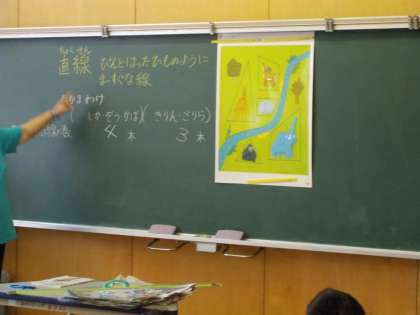 ちょくせん
直線 ぴんとはったひものように
まっすぐな線
なかまわけ
(しか・ぞう・かば)(きりん・ごりら)
4本 3本